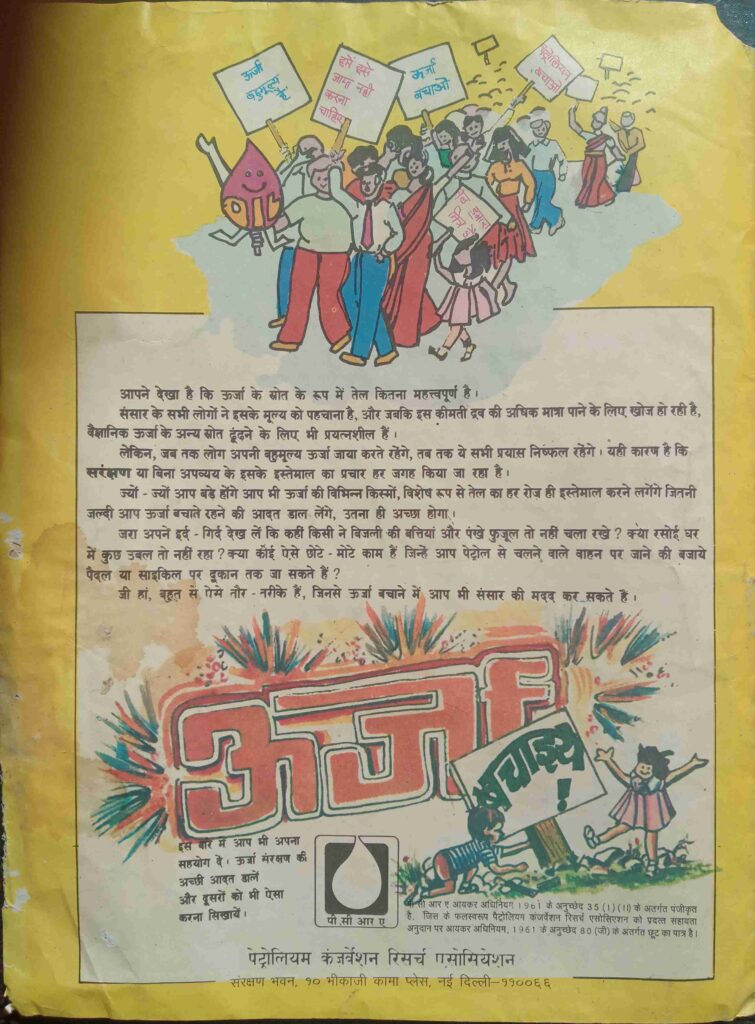 ऊर्जा
बहुमूल्य
है
इसे
जाया नहीं
करना
चाहिए
ऊर्जा
बचाओ
पेट्रोलियम
बचाओ
OIL
आपने देखा है कि ऊर्जा के स्रोत के रूप में तेल कितना महत्त्वपूर्ण है ।
संसार के सभी लोगों ने इसके मूल्य को पहचाना है, और जबकि इस कीमती द्रब की अधिक मात्रा पाने के लिए खोज हो रही है,
वैज्ञानिक ऊर्जा के अन्य स्रोत ढूंढने के लिए भी प्रयत्नशील हैं ।
लेकिन, जब तक लोग अपनी बहुमूल्य ऊर्जा जाया करते रहेंगे, तब तक ये सभी प्रयास निष्फल रहेंगे । यही कारण है कि
सरंक्षण या बिना अपव्यय के इसके इस्तेमाल का प्रचार हर जगह किया जा रहा है ।
ज्यों - ज्यों आप बडे होंगे आप भी ऊर्जा की विभिन्न किस्मों, विशेष रूप से तेल का हर रोज ही इस्तेमाल करने लगेंगे जितनी
जल्दी आप ऊर्जा बचाते रहने की आदत डाल लेंगे, उतना ही अच्छा होगा ।
जरा अपने इर्द - गिर्द देख लें कि कहीं किसी ने बिजली की बत्तियां और पंखे फुजूल तो नहीं चला रखे ? क्या रसोई घर
में कुछ उबल तो नहीं रहा ? क्या कोई ऐसे छोटे - मोटे काम हैं जिन्हें आप पेट्रोल से चलने वाले वाहन पर जाने की बजाये
पैदल या साइकिल पर दूकान तक जा सकते हैं ?
जी हां, बहुत से ऐसे तौर - तरीके हैं, जिनसे ऊर्जा बचाने में आप भी संसार की मदद कर सकते हैं ।
ऊर्जा
बचाइए
!
इस बारे में आप भी अपना
सहयोग दे । ऊर्जा संरक्षण की
अच्छी आदत डालें
और दूसरों को भी ऐसा
करना सिखायें ।
पी सी आर ए
पी सी आर ए आयकर अधिनियम 1961 के अनुच्छेद 35 (I) (II) के अंतर्गत पंजीकृत
है, जिस के फलस्वरूप पैट्रोलियम कंजर्वेशन रिसर्च एसोसिएशन को प्रदत्त सहायता
अनुदान पर आयकर अधिनियम, 1961 के अनुच्छेद 80 (जी) के अंतर्गत छूट का पात्र है ।
पेट्रोलियम कंजर्वेशन रिसर्च एसोसियेशन
संरक्षण भवन, १० भीकाजी कामा प्लेस, नई दिल्ली-११००६६